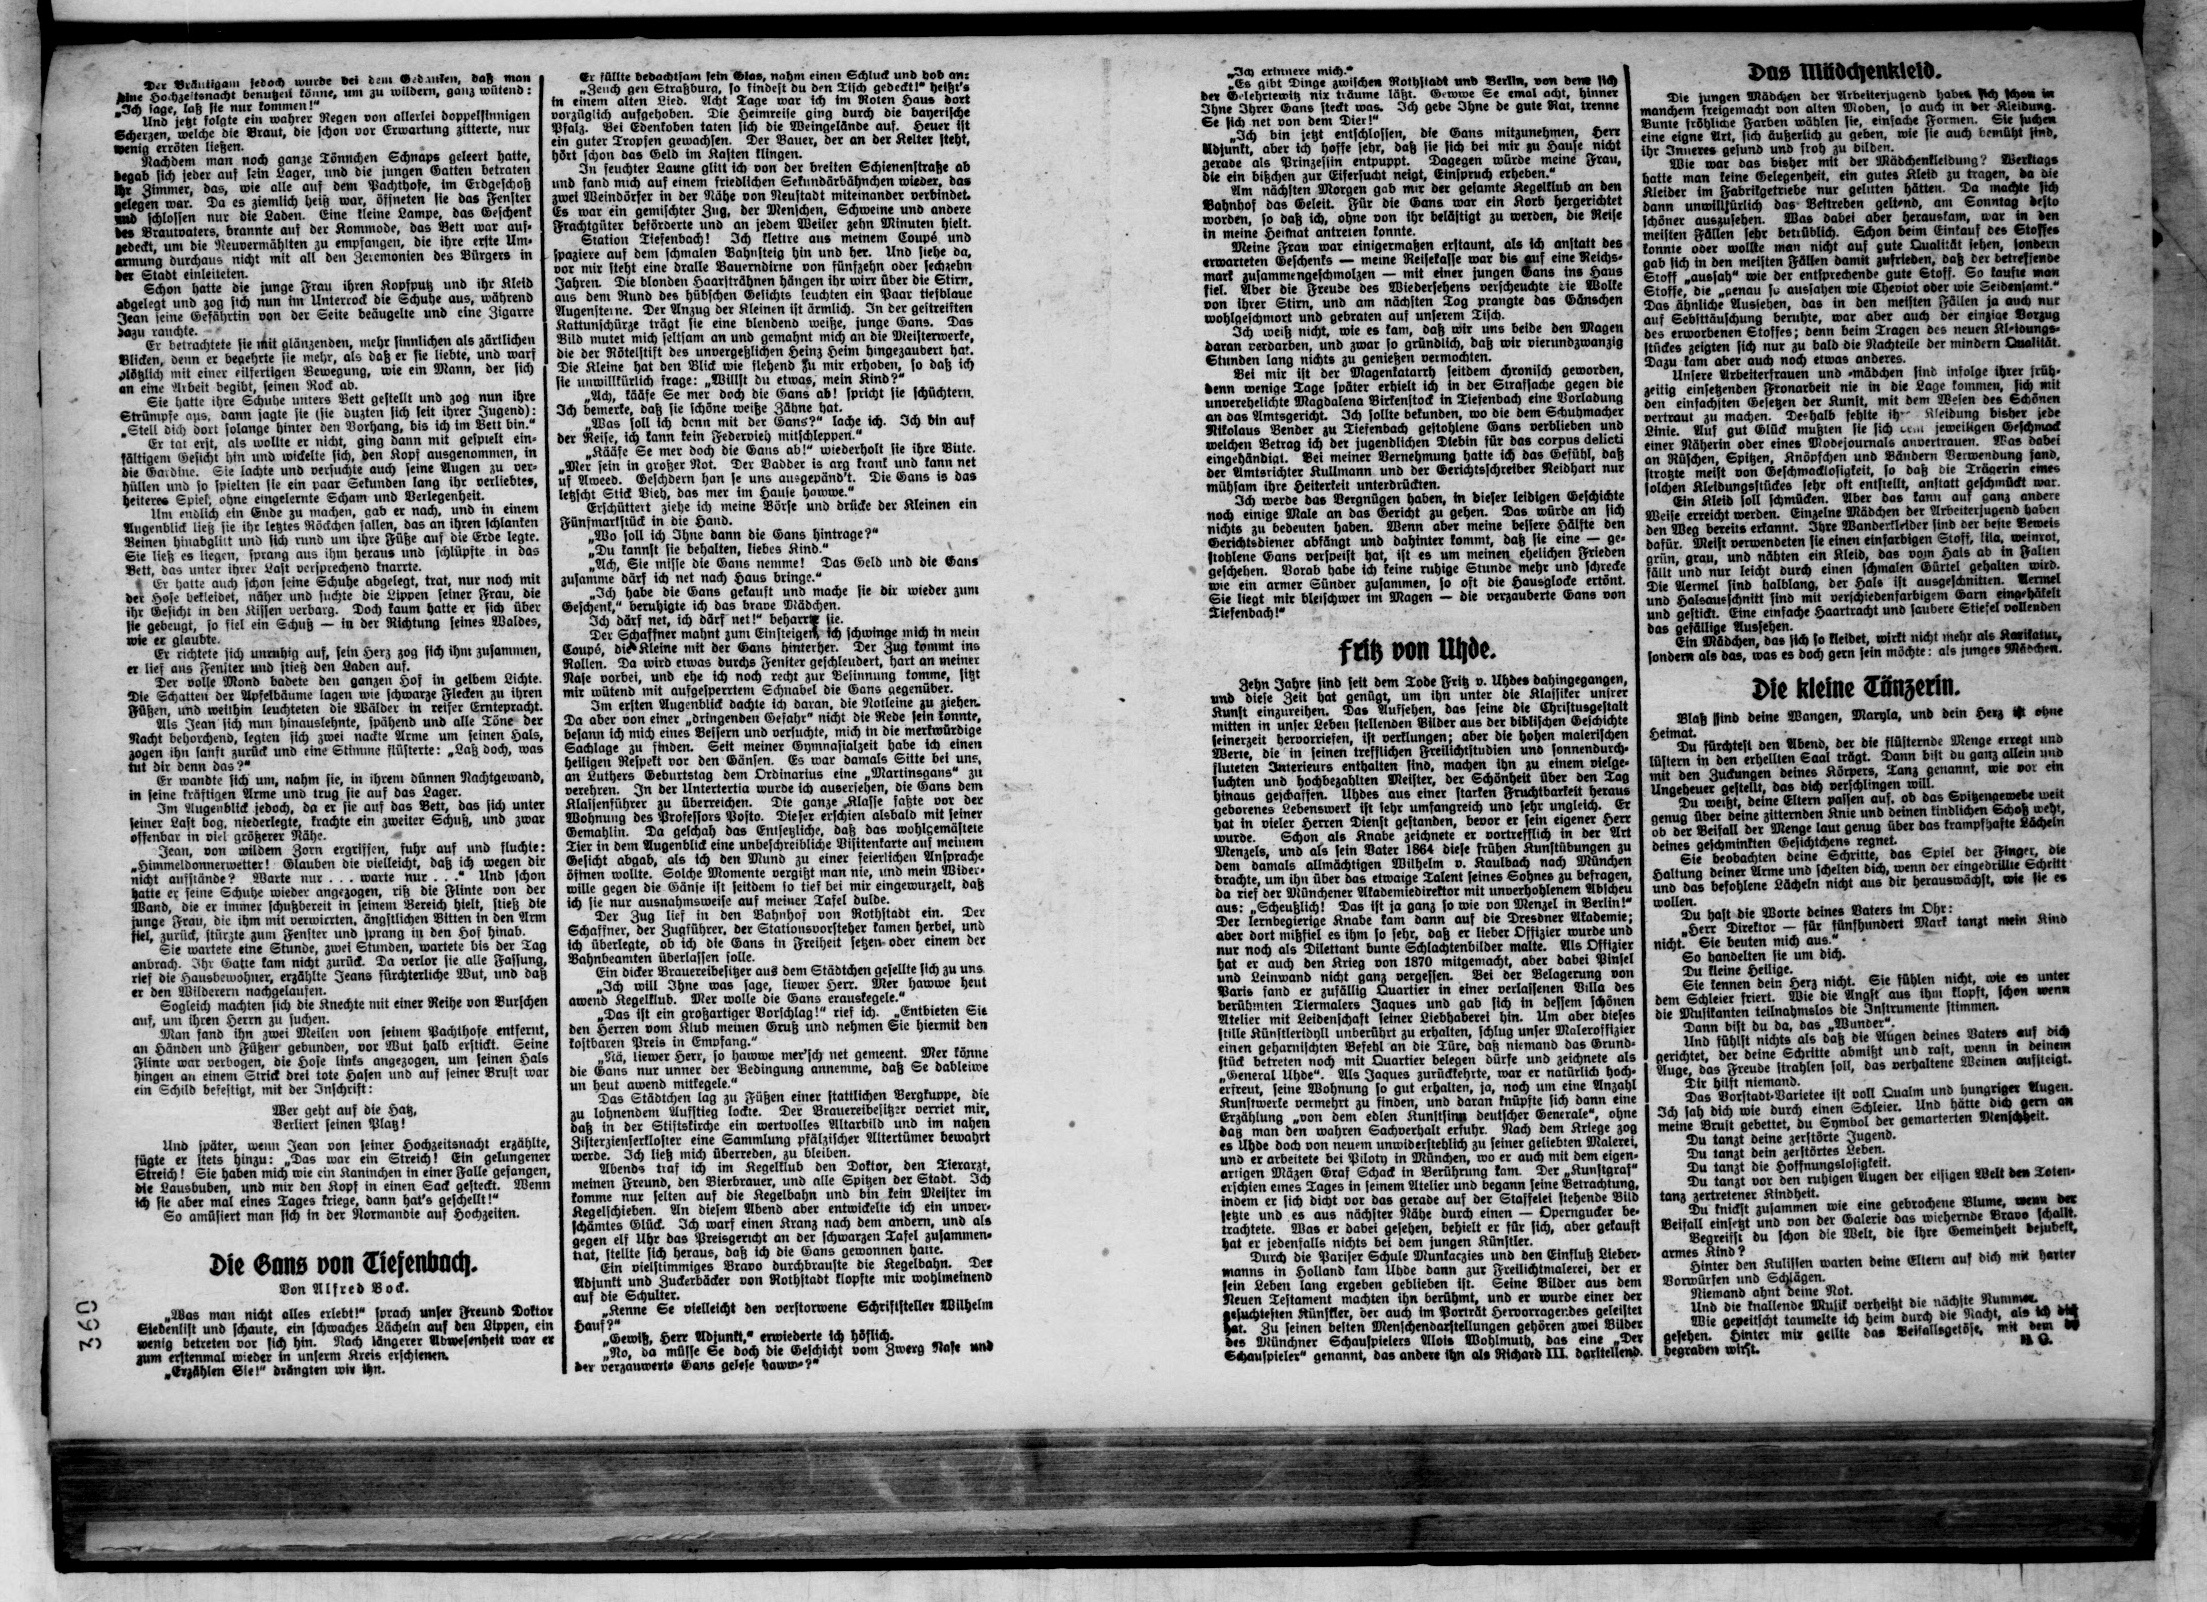 Der Bräutigam jedoch wurde bei dem Gedanken, daß man
seine Hochzeitsnacht benutzen könne, um zu wildern, ganz wütend:
„Ich sage, laß sie nur kommen!“
Und jetzt folgte ein wahrer Regen von allerlei doppelsinnigen
Scherzen, welche die Braut, die schon vor Erwartung zitterte, nur
wenig erröten ließen.
Nachdem man noch ganze Tönnchen Schnaps geleert hatte,
begab sich jeder auf sein Lager, und die jungen Gatten betraten
ihr Zimmer, das, wie alle auf dem Pachthofe, im Erdgeschoß
gelegen war. Da es ziemlich heiß war, öffneten sie das Fenster
und schlossen nur die Laden. Eine kleine Lampe, das Geschenk
des Brautvaters, brannte auf der Kommode, das Bett war auf-
gedeckt, um die Neuvermählten zu empfangen, die ihre erste Um-
armung durchaus nicht mit all den Zeremonien des Bürgers in
der Stadt einleiteten.
Schon hatte die junge Frau ihren Kopfputz und ihr Kleid
abgelegt und zog sich nun im Unterrock die Schuhe aus, während
Jean seine Gefährtin von der Seite beäugelte und eine Zigarre
dazu rauchte.
Er betrachtete sie mit glänzenden, mehr sinnlichen als zärtlichen
Blicken, denn er begehrte sie mehr, als daß er sie liebte, und warf
plötzlich mit einer eilfertigen Bewegung, wie ein Mann, der sich
an eine Arbeit begibt, seinen Rock ab.
Sie hatte ihre Schuhe unters Bett gestellt und zog nun ihre
Strümpfe aus, dann sagte sie (sie duzten sich seit ihrer Jugend):
„Stell dich dort solange hinter den Vorhang, bis ich im Bett bin.“
Er tat erst, als wollte er nicht, ging dann mit gespielt ein-
fältigem Gesicht hin und wickelte sich, den Kopf ausgenommen, in
die Gardine. Sie lachte und versuchte auch seine Augen zu ver-
hüllen und so spielten sie ein paar Sekunden lang ihr verliebtes,
heiteres Spiel, ohne eingelernte Scham und Verlegenheit.
Um endlich ein Ende zu machen, gab er nach, und in einem
Augenblick ließ sie ihr letztes Röckchen fallen, das an ihren schlanken
Beinen hinabglitt und sich rund um ihre Füße auf die Erde legte.
Sie ließ es liegen, sprang aus ihm heraus und schlüpfte in das
Bett, das unter ihrer Last versprechend knarrte.
Er hatte auch schon seine Schuhe abgelegt, trat, nur noch mit
der Hose bekleidet, näher und suchte die Lippen seiner Frau, die
ihr Gesicht in den Kissen verbarg. Doch kaum hatte er sich über
sie gebeugt, so fiel ein Schuß — in der Richtung seines Waldes,
wie er glaubte.
Er richtete sich unruhig auf, sein Herz zog sich ihm zusammen,
er lief ans Fenster und stieß den Laden auf.
Der volle Mond badete den ganzen Hof in gelbem Lichte.
Die Schatten der Apfelbäume lagen wie schwarze Flecken zu ihren
Füßen, und weithin leuchteten die Wälder in reifer Erntepracht.
Als Jean sich nun hinauslehnte, spähend und alle Töne der
Nacht behorchend, legten sich zwei nackte Arme um seinen Hals,
zogen ihn sanft zurück und eine Stimme flüsterte: „Laß doch, was
tut dir denn das?“
Er wandte sich um, nahm sie, in ihrem dünnen Nachtgewand,
in seine kräftigen Arme und trug sie auf das Lager.
Im Augenblick jedoch, da er sie auf das Bett, das sich unter
seiner Last bog, niederlegte, krachte ein zweiter Schuß, und zwar
offenbar in viel größerer Nähe.
Jean, von wildem Zorn ergriffen, fuhr auf und fluchte:
„Himmeldonnerwetter! Glauben die vielleicht, daß ich wegen dir
nicht aufstände? Warte nur . . . warte nur . . .“ Und schon
hatte er seine Schuhe wieder angezogen, riß die Flinte von der
Wand, die er immer schußbereit in seinem Bereich hielt, stieß die
junge Frau, die ihm mit verwirrten, ängstlichen Bitten in den Arm
fiel, zurück, stürzte zum Fenster und sprang in den Hof hinab.
Sie wartete eine Stunde, zwei Stunden, wartete bis der Tag
anbrach. Ihr Gatte kam nicht zurück. Da verlor sie alle Fassung,
rief die Hausbewohner, erzählte Jeans fürchterliche Wut, und daß
er den Wilderern nachgelaufen.
Sogleich machten sich die Knechte mit einer Reihe von Burschen
auf, um ihren Herrn zu suchen.
Man fand ihn zwei Meilen von seinem Pachthofe entfernt,
an Händen und Füßen gebunden, vor Wut halb erstickt. Seine
Flinte war verbogen, die Hose links angezogen, um seinen Hals
hingen an einem Strick drei tote Hasen und auf seiner Brust war
ein Schild befestigt, mit der Inschrift:
Wer geht auf die Hatz,
Verliert seinen Platz!
Und später, wenn Jean von seiner Hochzeitsnacht erzählte,
fügte er stets hinzu: „Das war ein Streich! Ein gelungener
Streich! Sie haben mich wie ein Kaninchen in einer Falle gefangen,
die Lausbuben, und mir den Kopf in einen Sack gesteckt. Wenn
ich sie aber mal eines Tages kriege, dann hat's geschellt!“
So amüsiert man sich in der Normandie auf Hochzeiten.
Die Gans von Tiefenbach.
Von Alfred Bock.
„Was man nicht alles erlebt!“ sprach unser Freund Doktor
Siedenlist und schaute, ein schwaches Lächeln auf den Lippen, ein
wenig betreten vor sich hin. Nach längerer Abwesenheit war er
zum erstenmal wieder in unserm Kreis erschienen.
„Erzählen Sie!“ drängten wir ihn.
Er füllte bedachtsam sein Glas, nahm einen Schluck und hob an:
„Zeuch gen Straßburg, so findest du den Tisch gedeckt!“ heißt's
in einem alten Lied. Acht Tage war ich im Roten Haus dort
vorzüglich aufgehoben. Die Heimreise ging durch die bayerische
Pfalz. Bei Edenkoben taten sich die Weingelände auf. Heuer ist
ein guter Tropfen gewachsen. Der Bauer, der an der Kelter steht,
hört schon das Geld im Kasten klingen.
In feuchter Laune glitt ich von der breiten Schienenstraße ab
und fand mich auf einem friedlichen Sekundärbähnchen wieder, das
zwei Weindörfer in der Nähe von Neustadt miteinander verbindet.
Es war ein gemischter Zug, der Menschen, Schweine und andere
Frachtgüter beförderte und an jedem Weiler zehn Minuten hielt.
Station Tiefenbach! Ich klettre aus meinem Coupé und
spaziere auf dem schmalen Bahnsteig hin und her. Und siehe da,
vor mir steht eine dralle Bauerndirne von fünfzehn oder sechzehn
Jahren. Die blonden Haarsträhnen hängen ihr wirr über die Stirn,
aus dem Rund des hübschen Gesichts leuchten ein Paar tiefblaue
Augensterne. Der Anzug der Kleinen ist ärmlich. In der gestreiften
Kattunschürze trägt sie eine blendend weiße, junge Gans. Das
Bild mutet mich seltsam an und gemahnt mich an die Meisterwerke,
die der Rötelstift des unvergeßlichen Heinz Heim hingezaubert hat.
Die Kleine hat den Blick wie flehend zu mir erhoben, so daß ich
sie unwillkürlich frage: „Willst du etwas, mein Kind?“
„Ach, kääfe Se mer doch die Gans ab! spricht sie schüchtern.
Ich bemerke, daß sie schöne weiße Zähne hat.
„Was soll ich denn mit der Gans?“ lache ich. Ich bin auf
der Reise, ich kann kein Federvieh mitschleppen.“
„Kääfe Se mer doch die Gans ab!“ wiederholt sie ihre Bitte.
„Mer sein in großer Not. Der Vadder is arg krank und kann net
uf Arweed. Geschdern han se uns ausgepänd't. Die Gans is das
letscht Stick Vieh, das mer im Hause howwe.“
Erschüttert ziehe ich meine Börse und drücke der Kleinen ein
Fünfmarkstück in die Hand.
„Wo soll ich Ihne dann die Gans hintrage?“
„Du kannst sie behalten, liebes Kind.“
„Ach, Sie misse die Gans nemme! Das Geld und die Gans
zusamme därf ich net nach Haus bringe.“
„Ich habe die Gans gekauft und mache sie dir wieder zum
Geschenk,“ beruhigte ich das brave Mädchen.
Ich därf net, ich därf net!“ beharrte sie.
Der Schaffner mahnt zum Einsteigen, ich schwinge mich in mein
Coupé, die Kleine mit der Gans hinterher. Der Zug kommt ins
Rollen. Da wird etwas durchs Fenster geschleudert, hart an meiner
Nase vorbei, und ehe ich noch recht zur Besinnung komme, sitzt
mir wütend mit aufgesperrtem Schnabel die Gans gegenüber.
Im ersten Augenblick dachte ich daran, die Notleine zu ziehen.
Da aber von einer „dringenden Gefahr“ nicht die Rede sein konnte,
besann ich mich eines Bessern und versuchte, mich in die merkwürdige
Sachlage zu finden. Seit meiner Gymnasialzeit habe ich einen
heiligen Respekt vor den Gänsen. Es war damals Sitte bei uns,
an Luthers Geburtstag dem Ordinarius eine „Martinsgans“ zu
verehren. In der Untertertia wurde ich ausersehen, die Gans dem
Klassenführer zu überreichen. Die ganze Klasse faßte vor der
Wohnung des Professors Posto. Dieser erschien alsbald mit seiner
Gemahlin. Da geschah das Entsetzliche, daß das wohlgemästete
Tier in dem Augenblick eine unbeschreibliche Visitenkarte auf meinem
Gesicht abgab, als ich den Mund zu einer feierlichen Ansprache
öffnen wollte. Solche Momente vergißt man nie, und mein Wider-
wille gegen die Gänse ist seitdem so tief bei mir eingewurzelt, daß
ich sie nur ausnahmsweise auf meiner Tafel dulde.
Der Zug lief in den Bahnhof von Rothstadt ein. Der
Schaffner, der Zugführer, der Stationsvorsteher kamen herbei, und
ich überlegte, ob ich die Gans in Freiheit setzen oder einem der
Bahnbeamten überlassen solle.
Ein dicker Brauereibesitzer aus dem Städtchen gesellte sich zu uns.
„Ich will Ihne was sage, liewer Herr. Mer hawwe heut
awend Kegelklub. Mer wolle die Gans erauskegele.“
„Das ist ein großartiger Vorschlag!“ rief ich. „Entbieten Sie
den Herren vom Klub meinen Gruß und nehmen Sie hiermit den
kostbaren Preis in Empfang.“
„Nä, liewer Herr, so hawwe mer'sch net gemeent. Mer könne
die Gans nur unner der Bedingung annemme, daß Se dableiwe
un heut awend mitkegele.“
Das Städtchen lag zu Füßen einer stattlichen Bergkuppe, die
zu lohnendem Aufstieg lockte. Der Brauereibesitzer verriet mir,
daß in der Stiftskirche ein wertvolles Altarbild und im nahen
Zisterzienserkloster eine Sammlung pfälzischer Altertümer bewahrt
werde. Ich ließ mich überreden, zu bleiben.
Abends traf ich im Kegelklub den Doktor, den Tierarzt,
meinen Freund, den Bierbrauer, und alle Spitzen der Stadt. Ich
komme nur selten auf die Kegelbahn und bin kein Meister im
Kegelschieben. An diesem Abend aber entwickelte ich ein unver-
schämtes Glück. Ich warf einen Kranz nach dem andern, und als
gegen elf Uhr das Preisgericht an der schwarzen Tafel zusammen-
trat, stellte sich heraus, daß ich die Gans gewonnen hatte.
Ein vielstimmiges Bravo durchbrauste die Kegelbahn. Der
Adjunkt und Zuckerbäcker von Rothstadt klopfte mir wohlmeinend
auf die Schulter.
„Kenne Se vielleicht den verstorwene Schriftsteller Wilhelm
Hauf?“
„Gewiß, Herr Adjunkt,“ erwiederte ich höflich.
„No, da müsse Se doch die Geschicht vom Zwerg Nase und
der verzauwerte Gans gelese hawwe?“
„Ich erinnere mich.“
„Es gibt Dinge zwischen Rothstadt und Berlin, von dene sich
der Gelehrtewitz nix träume läßt. Gewwe Se emal acht, hinner
Ihne Ihrer Gans steckt was. Ich gebe Ihne de gute Rat, trenne
Se sich net von dem Dier!“
„Ich bin jetzt entschlossen, die Gans mitzunehmen, Herr
Adjunkt, aber ich hoffe sehr, daß sie sich bei mir zu Hause nicht
gerade als Prinzessin entpuppt. Dagegen würde meine Frau,
die ein bißchen zur Eifersucht neigt, Einspruch erheben.“
Am nächsten Morgen gab mir der gesamte Kegelklub an den
Bahnhof das Geleit. Für die Gans war ein Korb hergerichtet
worden, so daß ich, ohne von ihr belästigt zu werden, die Reise
in meine Heimat antreten konnte.
Meine Frau war einigermaßen erstaunt, als ich anstatt des
erwarteten Geschenks — meine Reisekasse war bis auf eine Reichs-
mark zusammengeschmolzen — mit einer jungen Gans ins Haus
fiel. Aber die Freude des Wiedersehens verscheuchte die Wolke
von ihrer Stirn, und am nächsten Tag prangte das Gänschen
wohlgeschmort und gebraten auf unserem Tisch.
Ich weiß nicht, wie es kam, daß wir uns beide den Magen
daran verdarben, und zwar so gründlich, daß wir vierundzwanzig
Stunden lang nichts zu genießen vermochten.
Bei mir ist der Magenkatarrh seitdem chronisch geworden,
denn wenige Tage später erhielt ich in der Strafsache gegen die
unverehelichte Magdalena Birkenstock in Tiefenbach eine Vorladung
an das Amtsgericht. Ich sollte bekunden, wo die dem Schuhmacher
Nikolaus Bender zu Tiefenbach gestohlene Gans verblieben und
welchen Betrag ich der jugendlichen Diebin für das corpus delicti
eingehändigt. Bei meiner Vernehmung hatte ich das Gefühl, daß
der Amtsrichter Kullmann und der Gerichtschreiber Reidhart nur
mühsam ihre Heiterkeit unterdrückten.
Ich werde das Vergnügen haben, in dieser leidigen Geschichte
noch einige Male an das Gericht zu gehen. Das würde an sich
nichts zu bedeuten haben. Wenn aber meine bessere Hälfte den
Gerichtsdiener abfängt und dahinter kommt, daß sie eine — ge-
stohlene Gans verspeist hat, ist es um meinen ehelichen Frieden
geschehen. Vorab habe ich keine ruhige Stunde mehr und schrecke
wie ein armer Sünder zusammen, so oft die Hausglocke ertönt.
Sie liegt mir bleischwer im Magen — die verzauberte Gans von
Tiefenbach!“
Fritz von Uhde.
Zehn Jahre sind seit dem Tode Fritz v. Uhdes dahingegangen,
und diese Zeit hat genügt, um ihn unter die Klassiker unsrer
Kunst einzureihen. Das Aufsehen, das seine die Christusgestalt
mitten in unser Leben stellenden Bilder aus der biblischen Geschichte
seinerzeit hervorriefen, ist verklungen; aber die hohen malerischen
Werte, die in seinen trefflichen Freilichtstudien und sonnendurch-
fluteten Interieurs enthalten sind, machen ihn zu einem vielge-
suchten und hochbezahlten Meister, der Schönheit über den Tag
hinaus geschaffen. Uhdes aus einer starken Fruchtbarkeit heraus
geborenes Lebenswerk ist sehr umfangreich und sehr ungleich. Er
hat in vieler Herren Dienst gestanden, bevor er sein eigener Herr
wurde. Schon als Knabe zeichnete er vortrefflich in der Art
Menzels, und als sein Vater 1864 diese frühen Kunstübungen zu
dem damals allmächtigen Wilhelm v. Kaulbach nach München
brachte, um ihn über das etwaige Talent seines Sohnes zu befragen,
da rief der Münchener Akademiedirektor mit unverhohlenem Abscheu
aus: „Scheußlich! Das ist ja ganz so wie von Menzel in Berlin!“
Der lernbegierige Knabe kam dann auf die Dresdner Akademie;
aber dort mißfiel es ihm so sehr, daß er lieber Offizier wurde und
nur noch als Dilettant bunte Schlachtenbilder malte. Als Offizier
hat er auch den Krieg von 1870 mitgemacht, aber dabei Pinsel
und Leinwand nicht ganz vergessen. Bei der Belagerung von
Paris fand er zufällig Quartier in einer verlassenen Villa des
berühmten Tiermalers Jaques und gab sich in dessem schönen
Atelier mit Leidenschaft seiner Liebhaberei hin. Um aber dieses
stille Künstleridyll unberührt zu erhalten, schlug unser Maleroffizier
einen geharnischten Befehl an die Türe, daß niemand das Grund-
stück betreten noch mit Quartier belegen dürfe und zeichnete als
„General Uhde“. Als Jaques zurückkehrte, war er natürlich hoch-
erfreut, seine Wohnung so gut erhalten, ja, noch um eine Anzahl
Kunstwerke vermehrt zu finden, und daran knüpfte sich dann eine
Erzählung „von dem edlen Kunstsinn deutscher Generale“, ohne
daß man den wahren Sachverhalt erfuhr. Nach dem Kriege zog
es Uhde doch von neuem unwiderstehlich zu seiner geliebten Malerei,
und er arbeitete bei Piloty in München, wo er auch mit dem eigen-
artigen Mäzen Graf Schack in Berührung kam. Der „Kunstgraf“
erschien eines Tages in seinem Atelier und begann seine Betrachtung,
indem er sich dicht vor das gerade auf der Staffelei stehende Bild
setzte und es aus nächster Nähe durch einen — Operngucker be-
trachtete. Was er dabei gesehen, behielt er für sich, aber gekauft
hat er jedenfalls nichts bei dem jungen Künstler.
Durch die Pariser Schule Munkaczies und den Einfluß Lieber-
manns in Holland kam Uhde dann zur Freilichtmalerei, der er
sein Leben lang ergeben geblieben ist. Seine Bilder aus dem
Neuen Testament machten ihn berühmt, und er wurde einer der
gesuchtesten Künstler, der auch im Porträt Hervorragendes geleistet
hat. Zu seinen besten Menschendarstellungen gehören zwei Bilder
des Münchner Schauspielers Alois Wohlmuth, das eine „Der
Schauspieler“ genannt, das andere ihn als Richard III. darstellend.
Das Mädchenkleid.
Die jungen Mädchen der Arbeiterjugend haben sich schon in
manchem freigemacht von alten Moden, so auch in der Kleidung.
Bunte fröhliche Farben wählen sie, einfache Formen. Sie suchen
eine eigne Art, sich äußerlich zu geben, wie sie auch bemüht sind,
ihr Inneres gesund und froh zu bilden.
Wie war das bisher mit der Mädchenkleidung? Werktags
hatte man keine Gelegenheit, ein gutes Kleid zu tragen, da die
Kleider im Fabrikgetriebe nur gelitten hätten. Da machte sich
dann unwillkürlich das Bestreben geltend, am Sonntag desto
schöner auszusehen. Was dabei aber herauskam, war in den
meisten Fällen sehr betrüblich. Schon beim Einkauf des Stoffes
konnte oder wollte man nicht auf gute Qualität sehen, sondern
gab sich in den meisten Fällen damit zufrieden, daß der betreffende
Stoff „aussah“ wie der entsprechende gute Stoff. So kaufte man
Stoffe, die „genau so aussahen wie Cheviot oder wie Seidensamt.“
Das ähnliche Aussehen, das in den meisten Fällen ja auch nur
auf Sebsttäuschung beruhte, war aber auch der einzige Vorzug
des erworbenen Stoffes; denn beim Tragen des neuen Kleidungs-
stückes zeigten sich nur zu bald die Nachteile der mindern Qualität.
Dazu kam aber auch noch etwas anderes.
Unsere Arbeiterfrauen und -mädchen sind infolge ihrer früh-
zeitig einsetzenden Fronarbeit nie in die Lage kommen, sich mit
den einfachsten Gesetzen der Kunst, mit dem Wesen des Schönen
vertraut zu machen. Deshalb fehlte ihrer Kleidung bisher jede
Linie. Auf gut Glück mußten sie sich dem jeweiligen Geschmack
einer Näherin oder eines Modejournals anvertrauen. Was dabei
an Rüschen, Spitzen, Knöpfchen und Bändern Verwendung fand,
strotzte meist von Geschmacklosigkeit, so daß die Trägerin eines
solchen Kleidungsstückes sehr oft entstellt, anstatt geschmückt war.
Ein Kleid soll schmücken. Aber das kann auf ganz andere
Weise erreicht werden. Einzelne Mädchen der Arbeiterjugend haben
den Weg bereits erkannt. Ihre Wanderkleider sind der beste Beweis
dafür. Meist verwendeten sie einen einfarbigen Stoff, lila, weinrot,
grün, grau, und nähten ein Kleid, das vom Hals ab in Falten
fällt und nur leicht durch einen schmalen Gürtel gehalten wird.
Die Aermel sind halblang, der Hals ist ausgeschnitten. Aermel
und Halsausschnitt sind mit verschiedenfarbigem Garn eingehäkelt
und gestickt. Eine einfache Haartracht und saubere Stiefel vollenden
das gefällige Aussehen.
Ein Mädchen, das sich so kleidet, wirkt nicht mehr als Karikatur,
sondern als das, was es doch gern sein möchte: als junges Mädchen.
Die kleine Tänzerin.
Blaß sind deine Wangen, Maryla, und dein Herz ist ohne
Heimat.
Du fürchtest den Abend, der die flüsternde Menge erregt und
lüstern in den erhellten Saal trägt. Dann bist du ganz allein und
mit den Zuckungen deines Körpers, Tanz genannt, wie vor ein
Ungeheuer gestellt, das dich verschlingen will.
Du weißt, deine Eltern passen auf, ob das Spitzengewebe weit
genug über deine zitternden Knie und deinen kindlichen Schoß weht,
ob der Beifall der Menge laut genug über das krampfhafte Lächeln
deines geschminkten Gesichtchens regnet.
Sie beobachten deine Schritte, das Spiel der Finger, die
Haltung deiner Arme und schelten dich, wenn der eingedrillte Schritt
und das befohlene Lächeln nicht aus dir herauswächst, wie sie es
wollen.
Du hast die Worte deines Vaters im Ohr:
„Herr Direktor — für fünfhundert Mark tanzt mein Kind
nicht. Sie beuten mich aus.“
So handelten sie um dich.
Du kleine Heilige.
Sie kennen dein Herz nicht. Sie fühlen nicht, wie es unter
dem Schleier friert. Wie die Angst aus ihm klopft, schon wenn
die Musikanten teilnahmslos die Instrumente stimmen.
Dann bist du da, das „Wunder“.
Und fühlst nichts als daß die Augen deines Vaters auf dich
gerichtet, der deine Schritte abmißt und rast, wenn in deinem
Auge, das Freude strahlen soll, das verhaltene Weinen aufsteigt.
Dir hilft niemand.
Das Vorstadt-Varietee ist voll Qualm und hungriger Augen.
Ich sah dich wie durch einen Schleier. Und hätte dich gern an
meine Brust gebettet, du Symbol der gemarterten Menschheit.
Du tanzt deine zerstörte Jugend.
Du tanzt dein zerstörtes Leben.
Du tanzt die Hoffnungslosigkeit.
Du tanzt vor den ruhigen Augen der eisigen Welt den Toten-
tanz zertretener Kindheit.
Du knickst zusammen wie eine gebrochene Blume, wenn der
Beifall einsetzt und von der Galerie das wiehernde Bravo schallt.
Begreifst du schon die Welt, die ihre Gemeinheit bejubelt,
armes Kind?
Hinter den Kulissen warten deine Eltern auf dich mit harter
Vorwürfen und Schlägen.
Niemand ahnt deine Not.
Und die knallende Musik verheißt die nächste Nummer.
Wie gepeitscht taumelte ich heim durch die Nacht, als ich dich
gesehen. Hinter mir gellte das Beifallsgetöse, mit dem du
begraben wirst.
G.
360